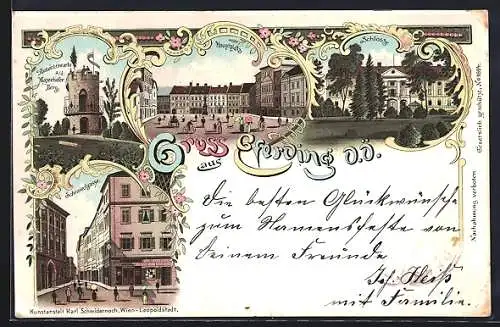 Aussichtswarte
a/d
Mayrhofer
Berg.
Hauptplatz
Schloss
Gruss
aus
Eferding O.Ö.
Schmiedgasse
Die besten Glückwünsche
zum Namensfeste von
Deinem Freunde
Jos. Heiß
mit Familie.
Kunstanstalt Karl Schwidernoch, Wien-Leopoldstadt.
Nachahmung verboten
Gesetzlich geschützt, No